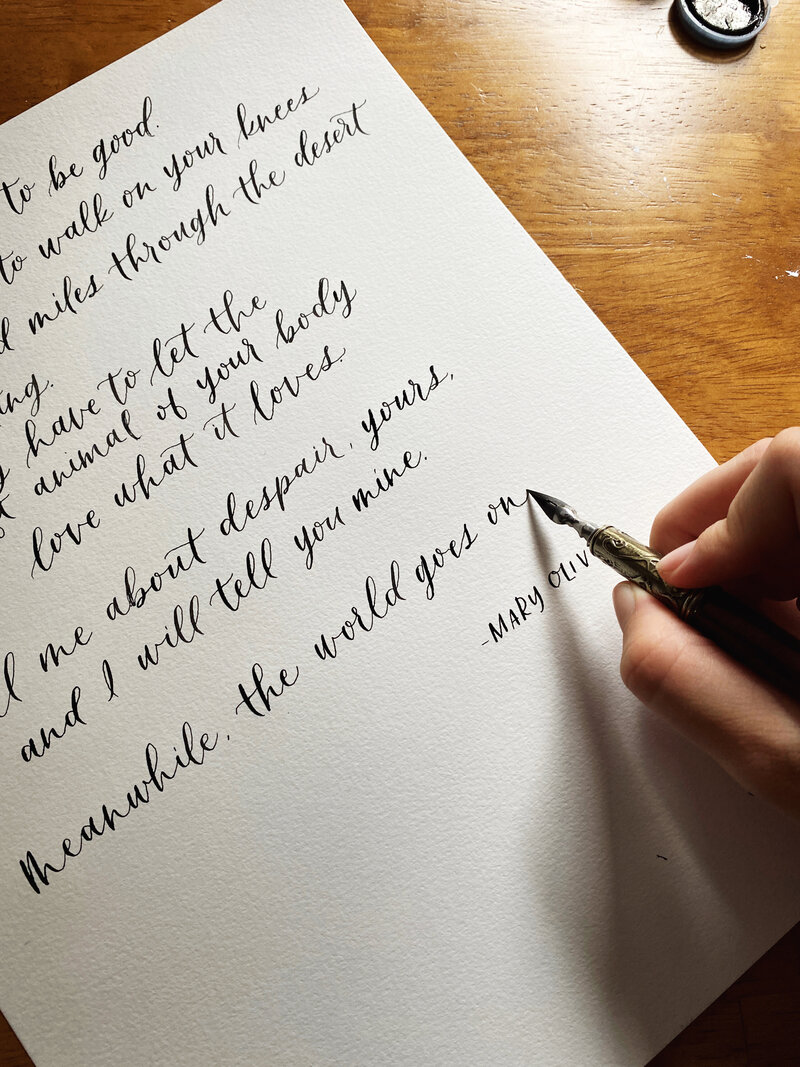 to be good.
to walk on your knees
d miles through the desert
ing.
y have to let the
t animal of your body
love what it loves.
l me about despair, yours,
and I will tell you mine.
Meanwhile, the world goes on
-MARY OLIV